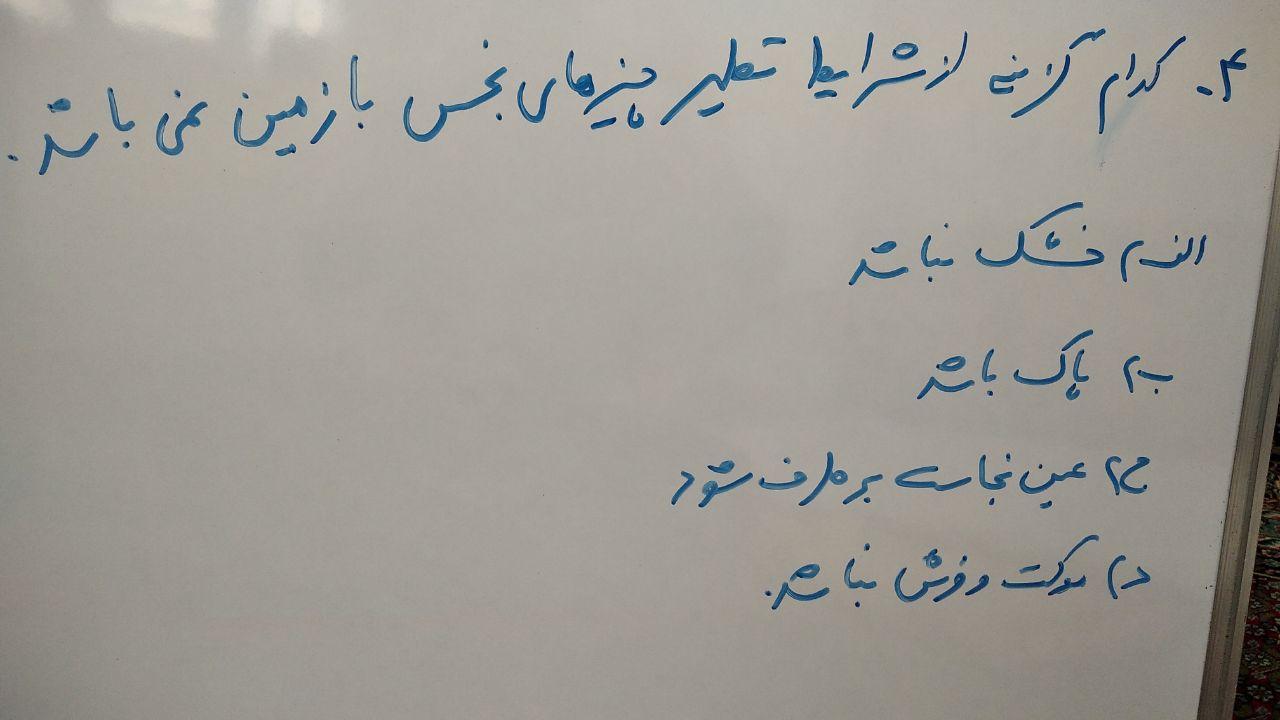 ۴. کدام گزینه از شرایط تطهیر چیزهای نجس با زمین نمی باشد.
الف) خشک نباشد
ب) پاک باشد
ج) عین نجاست برطرف شود
د) موکت و فرش نباشد.